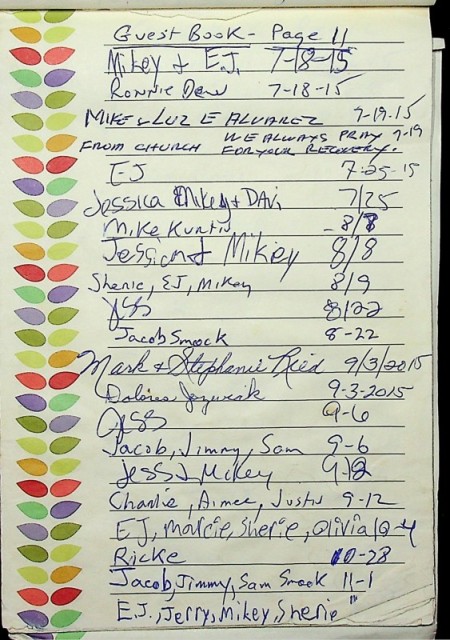 Guest Book - Page 11
Mikey & E.J. 7-18-15
Ronnie Dew 7-18-15
MIKE & LUZ E ALVAREZ 7-19-15
FROM CHURCH WE ALWAYS PRAY 7-19
FOR YOUR RECOVERY.
EJ 7-25-15
Jessica Mikey & DAVi 7/25
Mike Kuntis 8/8
Jessica & Mikey 8/8
Sherie, EJ, Mikey 8/9
8/22
Jacob Smock 8-22
Mark & Stephanie Reid 9/3/2015
Dolores 9-3-2015
Jess 9-6
Jacob, Jimmy, Sam 9-6
Jess & Mikey 9-12
Charlie, Aimee, Justin 9-12
EJ, Marcie, Sherie, Olivia 10-4
Ricke 10-28
Jacob, Jimmy, Sam Smock 11-1
E.J., Jerry, Mikey, Sherie "